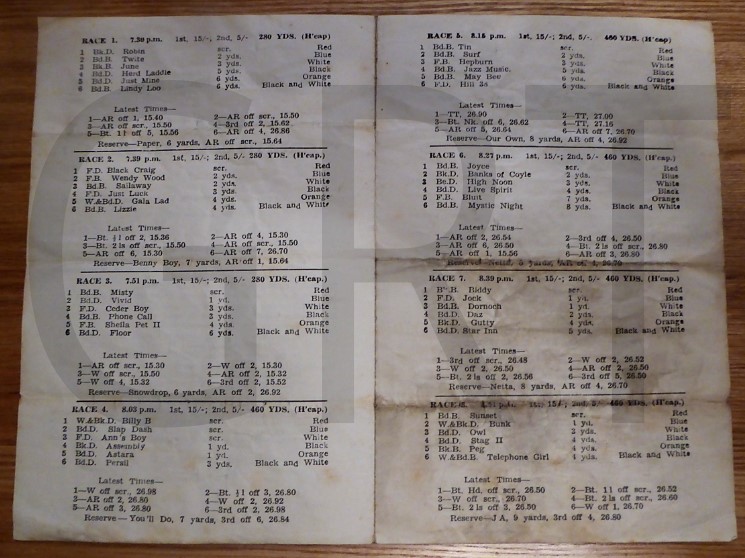 RACE 1. 7.30 p.m. 1st, 15/-; 2nd, 5/- 280 YDS. (H'cap)
1 Bk.D. Robin scr. Red
2 Bd.B. Twite 2 yds. Blue
3 Bk.B. June 3 yds. White
4 Bd.D. Herd Laddie 5 yds. Black
5 Bd.D. Just Mine 6 yds. Orange
6 Bd.B. Lindy Loo 6 yds. Black and White
Latest Times—
1—AR off 1, 15.40 2—AR off scr., 15.50
3—AR off scr., 15.50 4—3rd off 2, 15.62
5—Bt. 1l off 5, 15.56 6—AR off 4, 26.86
Reserve—Paper, 6 yards, AR off scr., 15.64
RACE 2. 7.39 p.m. 1st, 15/-; 2nd, 5/- 280 YDS. (H'cap.)
1 F.D. Black Craig scr. Red
2 F.B. Wendy Wood 2 yds. Blue
3 Bd.B. Sailaway 2 yds. White
4 F.D. Just Luck 3 yds. Black
5 W.&Bd.D. Gala Lad 4 yds. Orange
6 Bd.B. Lizzie 4 yds. Black and White
Latest Times—
1—Bt. ½l off 2, 15.36 2—AR off 4, 15.30
3—Bt. 2ls off scr., 15.50 4—AR off scr., 15.50
5—AR off 6, 15.30 6—AR off 7, 26.70
Reserve—Benny Boy, 7 yards, AR off 1, 15.64
RACE 3. 7.51 p.m. 1st, 15/-; 2nd, 5/- 280 YDS. (H'cap.)
1 Bd.B. Misty scr. Red
2 Bd.D. Vivid 1 yd. Blue
3 F.D. Ceder Boy 3 yds. White
4 Bd.B. Phone Call 3 yds. Black
5 F.B. Sheila Pet II 4 yds. Orange
6 Bd.D. Floor 6 yds. Black and White
Latest Times—
1—AR off scr., 15.30 2—W off 2, 15.30
3—W off scr., 15.50 4—AR off 2, 15.32
5—W off 4, 15.32 6—3rd off 2, 15.52
Reserve—Snowdrop, 6 yards, AR off 2, 26.92
RACE 4. 8.03 p.m. 1st, 15/-; 2nd, 5/- 460 YDS. (H'cap.)
1 W.&Bk.D. Billy B scr. Red
2 Bd.D. Slap Dash scr. Blue
3 F.D. Ann's Boy scr. White
4 Bk.D. Assembly 1 yd. Black
5 Bd.D. Astara 1 yd. Orange
6 Bd.D. Perail 3 yds. Black and White
Latest Times—
1—W off scr., 26.98 2—Bt. ½l off 3, 26.80
3—AR off 2, 26.80 4—W off 2, 26.92
5—AR off 3, 26.80 6—3rd off 2, 26.98
Reserve—You'll Do, 7 yards, 3rd off 6, 26.84
RACE 5. 8.15 p.m. 1st, 15/-; 2nd, 5/-. 460 YDS. (H'cap.)
1 Bd.B. Tin scr. Red
2 Bd.B. Surf 2 yds. Blue
3 F.B. Hepburn 3 yds. White
4 Bd.B. Jazz Music. 5 yds. Black
5 Bd.B. May Bee 6 yds. Orange
6 F.D. Hill 38 6 yds. Black and White
Latest Times—
1—TT, 26.90 2—TT, 27.00
3—Bt. Nk. off 6, 26.62 4—TT, 27.16
5—AR off 5, 26.64 6—AR off 7, 26.70
Reserve—Our Own, 8 yards, AR off 4, 26.92
RACE 6. 8.27 p.m. 1st, 15/-; 2nd, 5/- 460 YDS. (H'cap.)
1 Bd.B. Joyce scr. Red
2 Bk.D. Banks of Coyle 2 yds. Blue
3 Be.D. High Noon 3 yds. White
4 Bd.D. Live Spirit 4 yds. Black
5 F.B. Blunt 7 yds. Orange
6 Bd.B. Mystic Night 8 yds. Black and White
Latest Times—
1—AR off 2, 26.54 2—3rd off 4, 26.50
3—AR off 6, 26.50 4—Bt. 2ls off scr., 26.80
5—AR off 1, 15.56 6—AR off 3, 26.80
RACE 7. 8.39 p.m. 1st, 15/-; 2nd, 5/- 460 YDS. (H'cap.)
1 Biddy scr. Red
2 F.D. Jock 1 yd. Blue
3 Bd.B. Dornoch 1 yd. White
4 Bd.D. Daz 2 yds. Black
5 Bk.D. Gutty 4 yds. Orange
6 Bd.D. Star Inn 5 yds. Black and White
Latest Times—
1—3rd off scr., 26.48 2—W off 2, 26.52
3—W off 2, 26.50 4—AR off 2, 26.50
5—Bt. 2ls off 2, 26.56 6—3rd off 5, 26.50
Reserve—Netta, 8 yards, AR off 4, 26.70
RACE 1st, 15/-; 2nd, 5/- 460 YDS. (H'cap.)
1 Bd.B. Sunset scr. Red
2 W.&Bk.D. Bunk 1 yd. Blue
3 Bd.D. Owl 3 yds. White
4 Bd.D. Stag II 4 yds. Black
5 Bk.B. Peg 4 yds. Orange
6 W.&Bd.B. Telephone Girl 4 yds. Black and White
Latest Times—
1—Bt. Hd. off scr., 26.50 2—Bt. 1l off scr., 26.52
3—W off scr., 26.50 4—Bt. 2ls off scr., 26.60
5—Bt. 2ls off 3, 26.50 6—W off 1, 26.70
Reserve—JA, 9 yards, 3rd off 4, 26.80